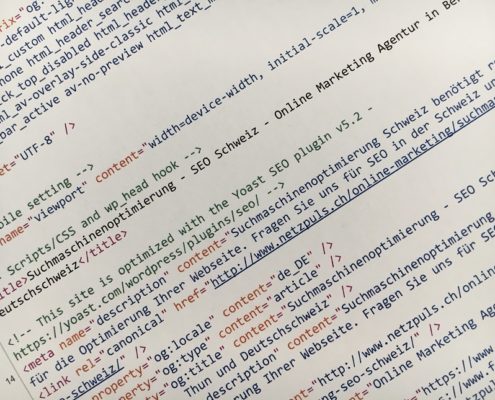 fix="og:
-default-lig
_custom html_header_sear
none html_header_search
ck_top_disabled html_mob
ml_av-overlay-side-classic html_
bar_active av-no-preview html_text_m
et="UTF-8" />
bile setting -->
name="viewport" content="width=device-width, initial-scale=1, m
Scripts/CSS and wp_head hook -->
title>Suchmaschinenoptimierung - SEO Schweiz - Online Marketing Agentur in Be
eutschschweiz</title>
<!-- This site is optimized with the Yoast SEO plugin v5.2 -
https://yoast.com/wordpress/plugins/seo/ -->
<meta name="description" content="Suchmaschinenoptimierung Schweiz benötigt
für die Optimierung Ihrer Webseite. Fragen Sie uns für SEO in der Schweiz
<link rel="canonical" href="http://www.netzpuls.ch/online-marketing/suchma
-schweiz/" />
property="og:locale" content="de_DE" />
property="og:type" content="article" />
property="og:title" content="Suchmaschinenoptimierung - SEO Sch
Thun und Deutschschweiz" />
description" content="Suchmaschinenoptimierung
Ihrer Webseite. Fragen Sie uns für SEO
http://www.netzpuls.ch/onlin
ng-seo-schweiz/" />
Online Marketing Agen
content="https:/
14